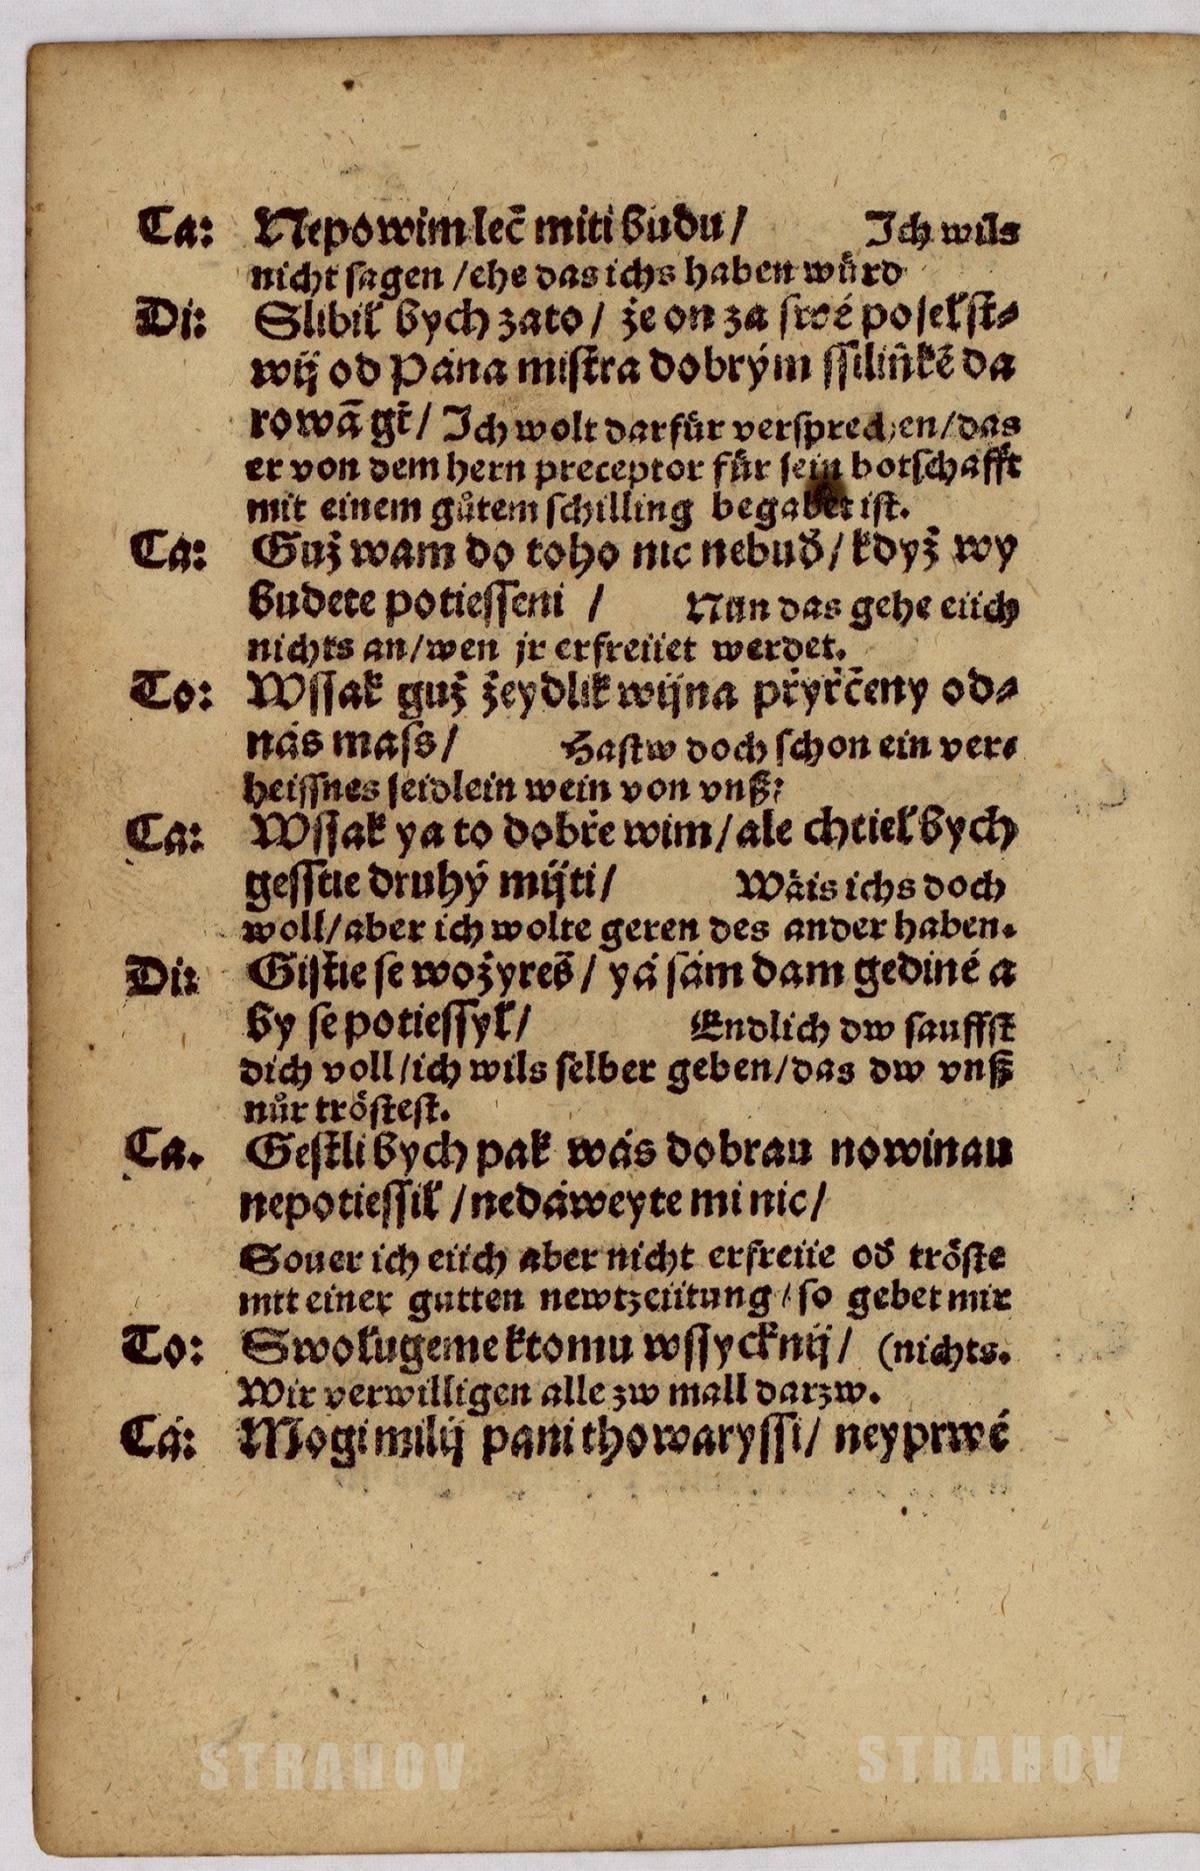 Ca: Nepowim lecž miti budu / Ich wils
nicht sagen / ehe das ichs haben würd
Di: Slibil bych zato / že on za swé poselst⸗
wij od Pána mistra dobrým ssiliňkē da
rowā gt̃ / Ich wolt darfür versprechen / das
er von dem hern preceptor für sein botschafft
mit einem gůtem schilling begabet ist.
Ca: Guž wam do toho nic nebuď / když wy
budete potiesseni / Nün das gehe eüch
nichts an / wen jr erfreüet werdet.
To: Wssak guž žeydlik wijna přyřčeny od⸗
nás mass / Hastw doch schon ein ver⸗
heissnes seidlein wein von vnß:
Ca: Wssak ya to dobře wim / ale chtiel bych
gesstie druhý mijti / Wäis ichs doch
woll / aber ich wolte geren des ander haben.
Di: Gistie se wožyreš / yá sám dam gediné a
by se potiessyl / Endlich dw sauffst
dich voll / ich wils selber geben / das dw vnß
nůr tröstest.
Ca. Gestli bych pak wás dobrau nowinau
nepotiessil / nedáweyte mi nic /
Souer ich eüch aber nicht erfreüe oď tröste
mit einer gutten newtzeütung / so gebet mir
To: Swolugeme ktomu wssycknij / (nichts.
Wir verwilligen alle zw mall darzw.
Cá: Mogi milij pani thowaryssi / neyprwé
STRAHOV STRAHOV